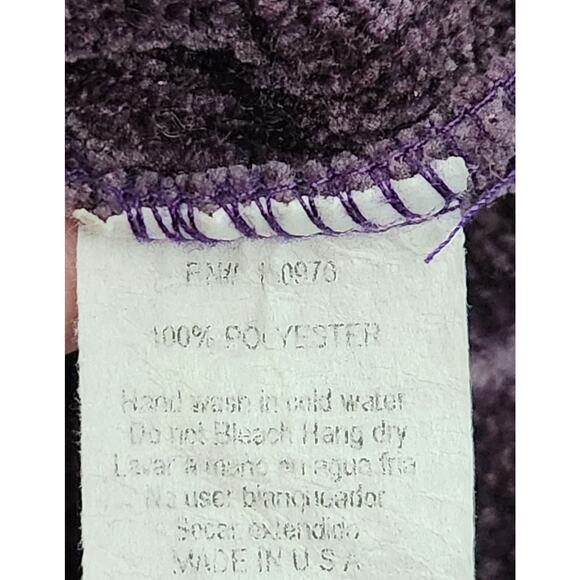 RN#
100% POLYESTER
Hand wash in cold water
Do not Bleach Hang dry
Lavar a mano en agua fria
No user blanqueador
Secar extendido
MADE IN U S A